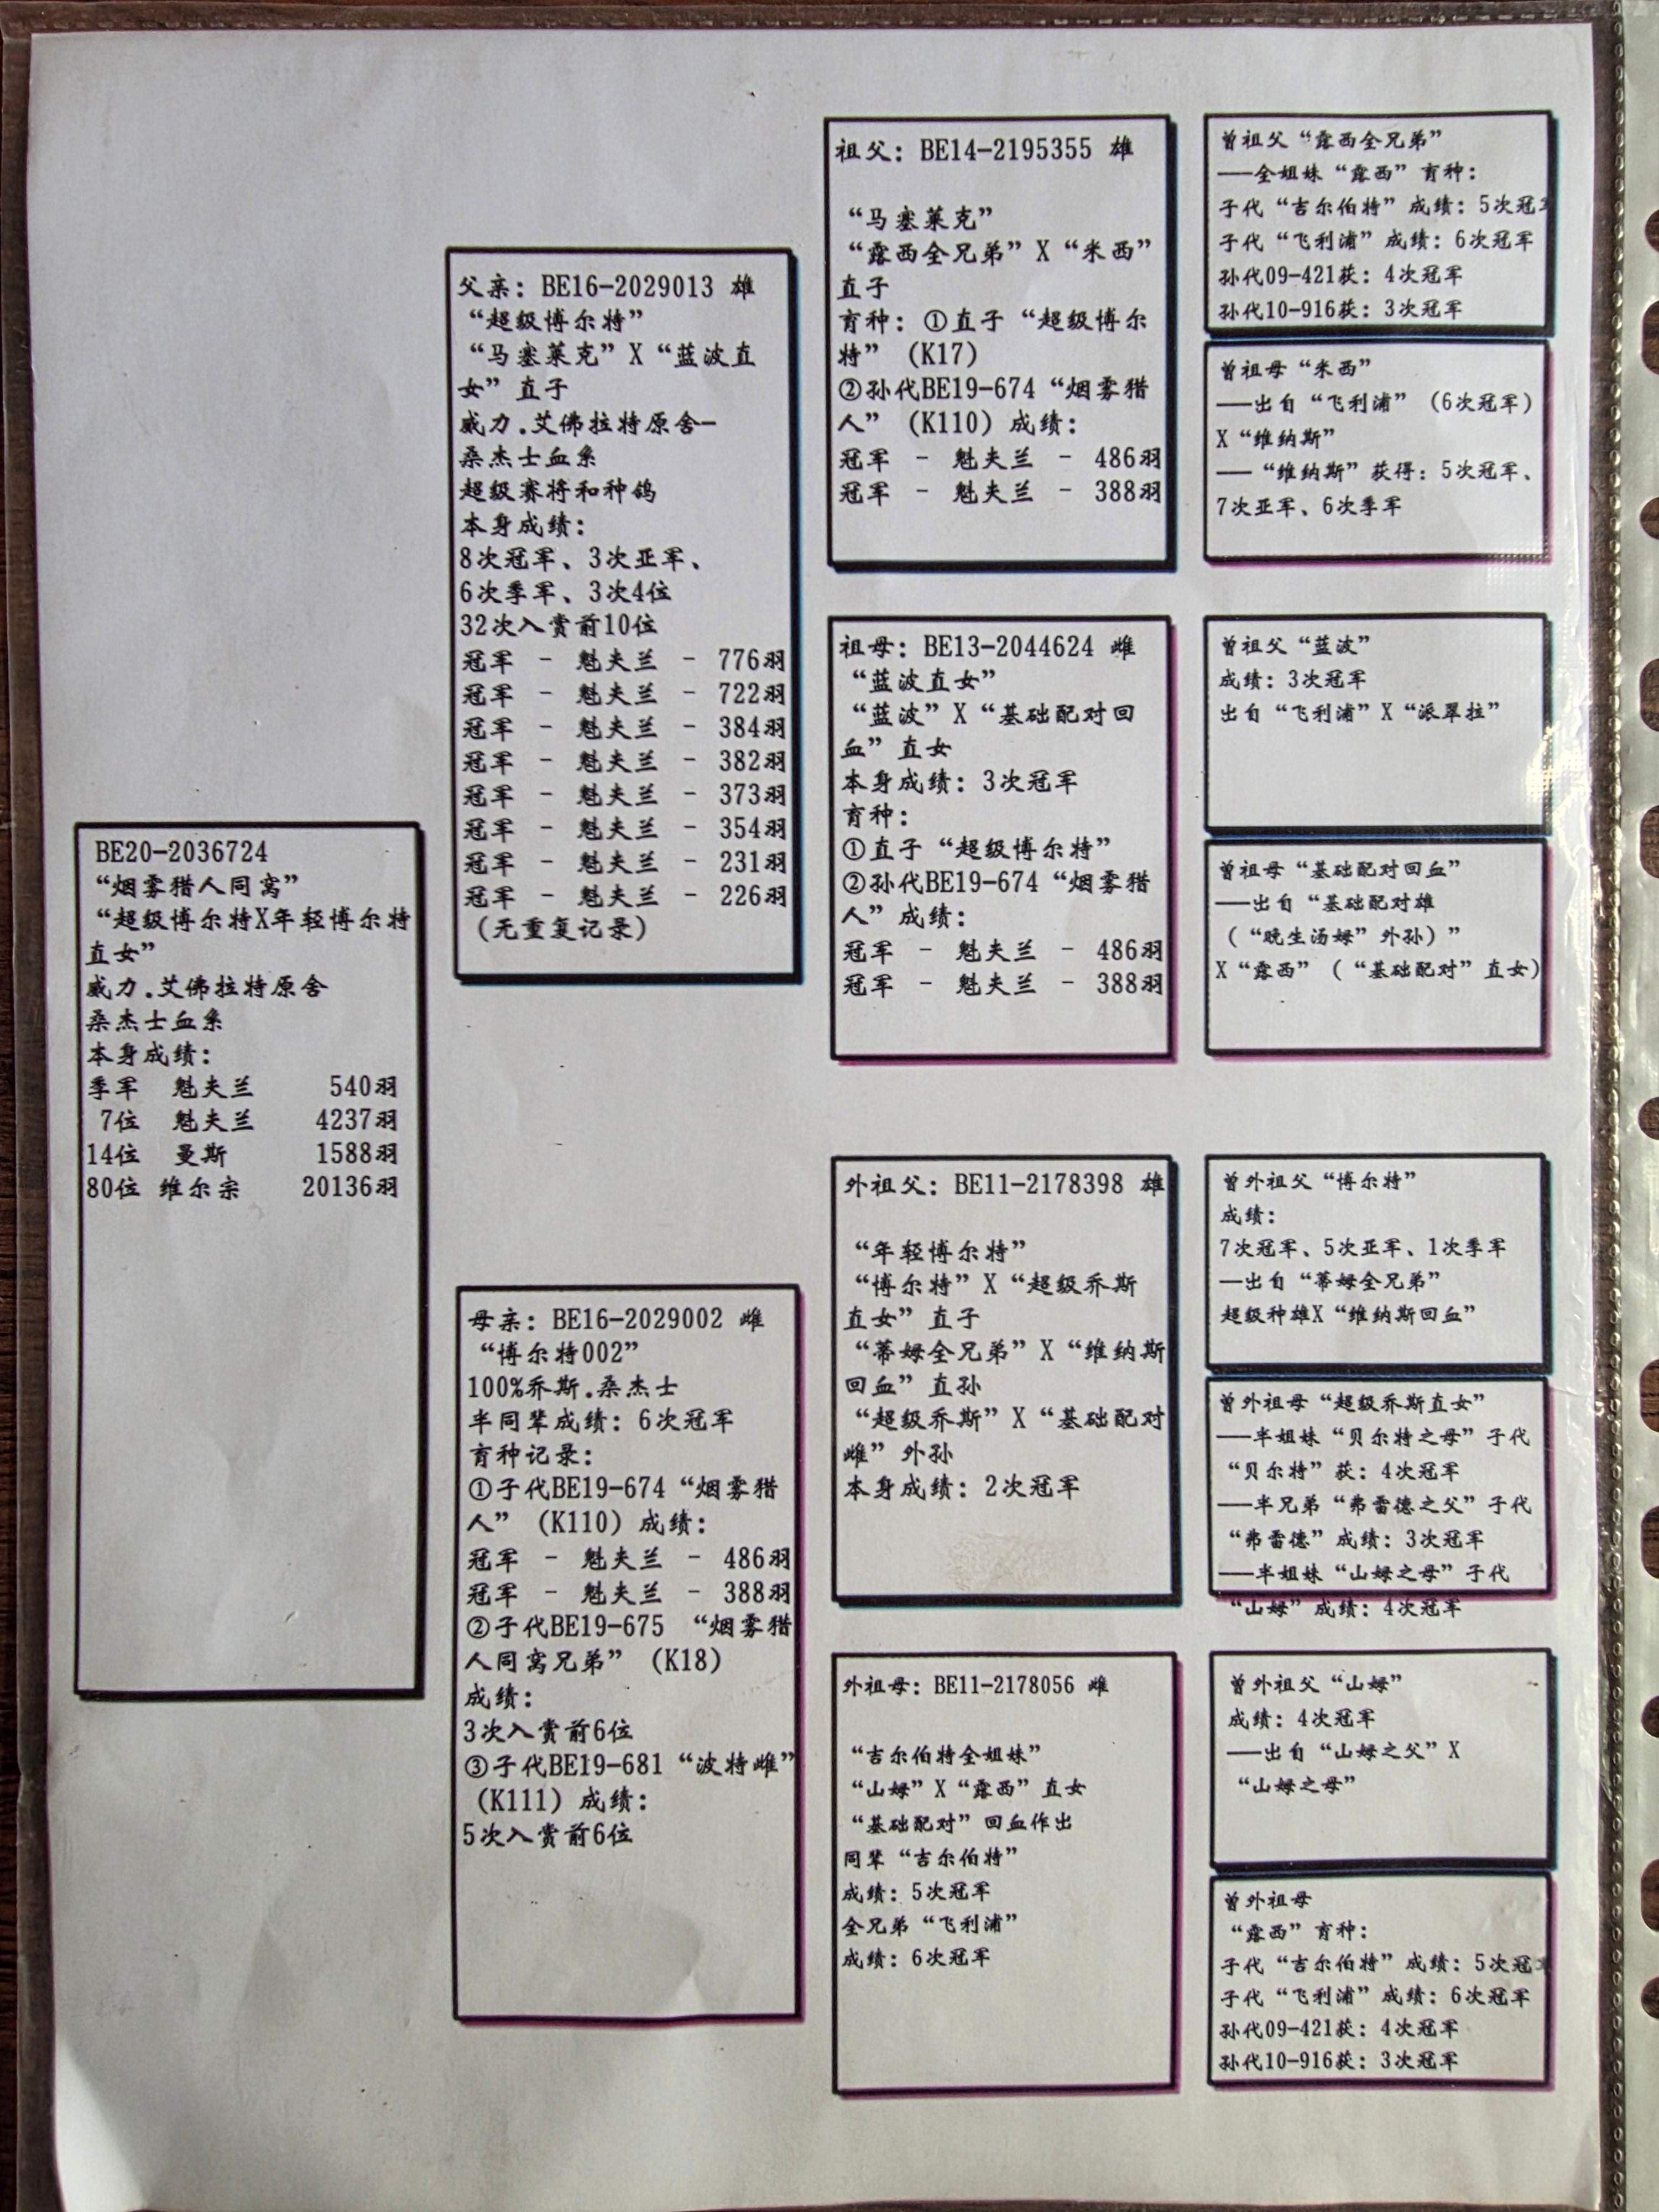 BE20-2036724
“烟雾猎人同窝”
“超级博尔特X年轻博尔特
直女”
威力.艾佛拉特原舍
桑杰士血系
本身成绩:
季军 魁夫兰 540羽
7位 魁夫兰 4237羽
14位 曼斯 1588羽
80位 维尔宗 20136羽
父亲: BE16-2029013 雄
“超级博尔特”
“马塞莱克”X“蓝波直
女”直子
威力.艾佛拉特原舍-
桑杰士血系
超级赛将和种鸽
本身成绩:
8次冠军、3次亚军、
6次季军、3次4位
32次入赏前10位
冠军 - 魁夫兰 - 776羽
冠军 - 魁夫兰 - 722羽
冠军 - 魁夫兰 - 384羽
冠军 - 魁夫兰 - 382羽
冠军 - 魁夫兰 - 373羽
冠军 - 魁夫兰 - 354羽
冠军 - 魁夫兰 - 231羽
冠军 - 魁夫兰 - 226羽
(无重复记录)
母亲: BE16-2029002 雌
“博尔特002”
100%乔斯.桑杰士
半同辈成绩: 6次冠军
育种记录:
①子代BE19-674“烟雾猎
人”(K110)成绩:
冠军 - 魁夫兰 - 486羽
冠军 - 魁夫兰 - 388羽
②子代BE19-675 “烟雾猎
人同窝兄弟”(K18)
成绩:
3次入赏前6位
③子代BE19-681“波特雌”
(K111)成绩:
5次入赏前6位
祖父: BE14-2195355 雄
“马塞莱克”
“露西全兄弟”X“米西”
直子
育种: ①直子“超级博尔
特”(K17)
②孙代BE19-674“烟雾猎
人”(K110)成绩:
冠军 - 魁夫兰 - 486羽
冠军 - 魁夫兰 - 388羽
祖母: BE13-2044624 雌
“蓝波直女”
“蓝波”X“基础配对回
血”直女
本身成绩: 3次冠军
育种:
①直子“超级博尔特”
②孙代BE19-674“烟雾猎
人”成绩:
冠军 - 魁夫兰 - 486羽
冠军 - 魁夫兰 - 388羽
外祖父: BE11-2178398 雄
“年轻博尔特”
“博尔特”X“超级乔斯
直女”直子
“蒂姆全兄弟”X“维纳斯
回血”直孙
“超级乔斯”X“基础配对
雌”外孙
本身成绩: 2次冠军
外祖母: BE11-2178056 雌
“吉尔伯特全姐妹”
“山姆”X“露西”直女
“基础配对”回血作出
同辈“吉尔伯特”
成绩: 5次冠军
全兄弟“飞利浦”
成绩: 6次冠军
曾祖父“露西全兄弟”
——全姐妹“露西”育种:
子代“吉尔伯特”成绩: 5次冠
子代“飞利浦”成绩: 6次冠军
孙代09-421获: 4次冠军
孙代10-916获: 3次冠军
曾祖母“米西”
——出自“飞利浦”(6次冠军)
X“维纳斯”
——“维纳斯”获得: 5次冠军、
7次亚军、6次季军
曾祖父“蓝波”
成绩: 3次冠军
出自“飞利浦”X“派翠拉”
曾祖母“基础配对回血”
——出自“基础配对雄
(“晚生汤姆”外孙)”
X“露西”(“基础配对”直女)
曾外祖父“博尔特”
成绩:
7次冠军、5次亚军、1次季军
—出自“蒂姆全兄弟”
超级种雄X“维纳斯回血”
曾外祖母“超级乔斯直女”
——半姐妹“贝尔特之母”子代
“贝尔特”获: 4次冠军
——半兄弟“弗雷德之父”子代
“弗雷德”成绩: 3次冠军
——半姐妹“山姆之母”子代
“山姆”成绩: 4次冠军
曾外祖父“山姆”
成绩: 4次冠军
——出自“山姆之父”X
“山姆之母”
曾外祖母
“露西”育种:
子代“吉尔伯特”成绩: 5次冠
子代“飞利浦”成绩: 6次冠军
孙代09-421获: 4次冠军
孙代10-916获: 3次冠军